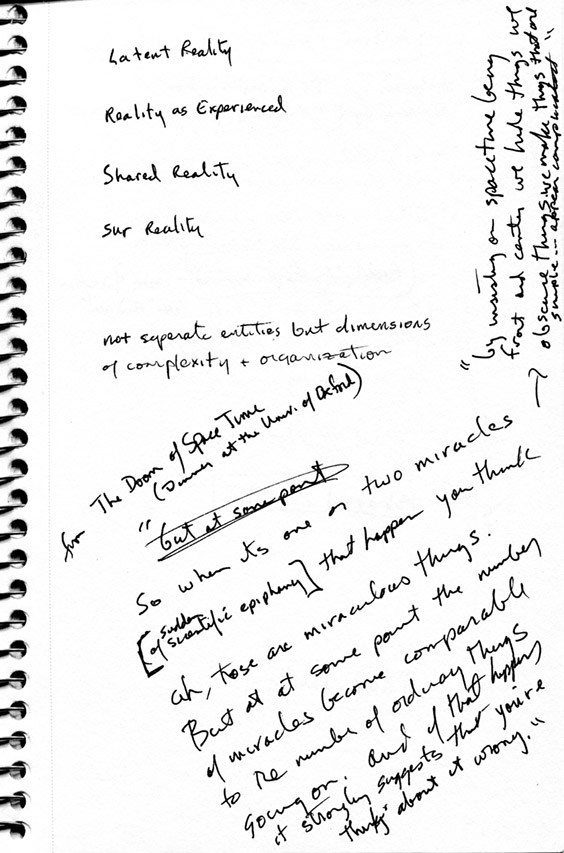 Latent Reality
Reality as Experienced
Shared Reality
Sur Reality
not separate entities but dimensions
of complexity + organization
from The Doom of Space Time
(Dinner at the Univ. of Oxford)
"but at some point
So when its one or two miracles
[of sudden scientific epiphany] that happen you think
ah, those are miraculous things.
But at at some point the number
of miracles become comparable
to the number of ordinary things
going on. And if that happens
it strongly suggests that you're
thinking about it wrong."
"by insisting on spacetime being
front and center we hide things we
obscure things, we make things that are
simple ... appear complicated"